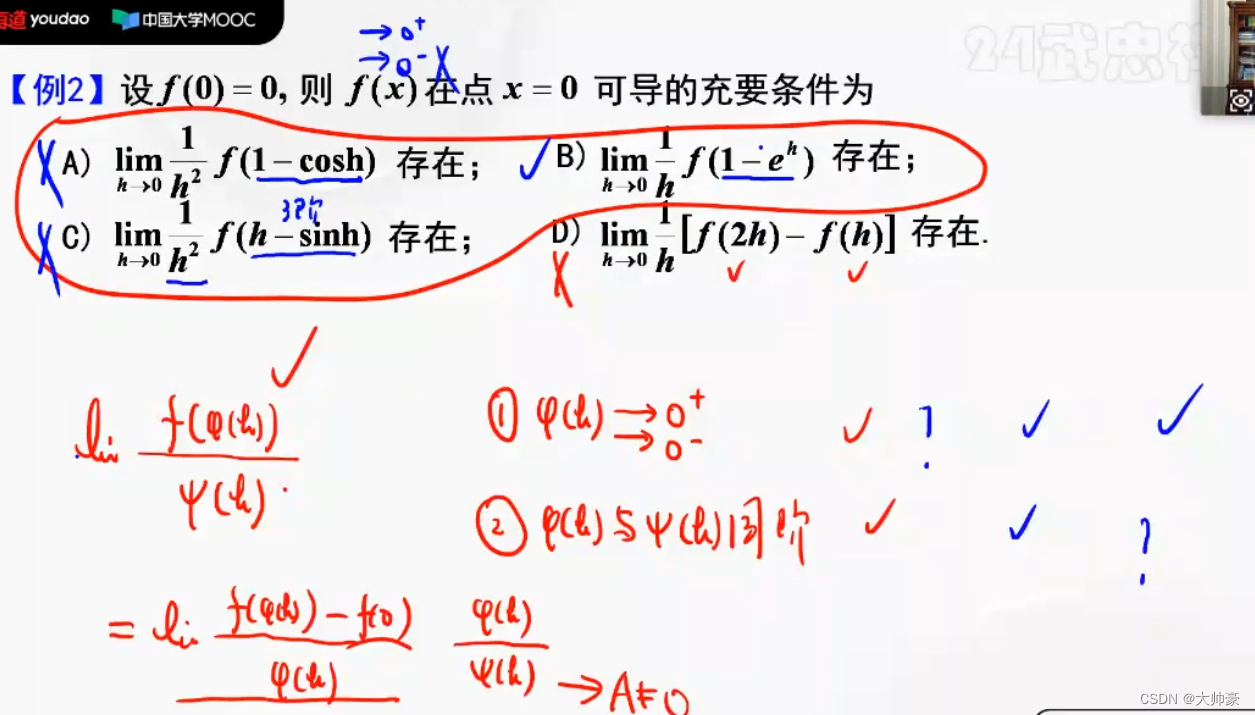 有道 youdao 中国大学MOOC
→ 0⁺
→ 0⁻ ×
24武忠祥
【例2】设 f(0) = 0, 则 f(x) 在点 x = 0 可导的充要条件为
× A) lim_{h→0} 1/h² f(1 − cosh) 存在;
✓ B) lim_{h→0} 1/h f(1 − e^h) 存在;
3阶
× C) lim_{h→0} 1/h² f(h − sinh) 存在;
× D) lim_{h→0} 1/h [f(2h) − f(h)] 存在.
✓ ✓
✓
lim f(φ(h))/ψ(h)
① φ(h) → 0⁺ → 0⁻ ✓ ? ✓ ✓
② φ(h) 与 ψ(h) 同阶 ✓ ✓ ?
= lim (f(φ(h)) − f(0))/φ(h) φ(h)/ψ(h) → A ≠ 0
CSDN @大帅豪